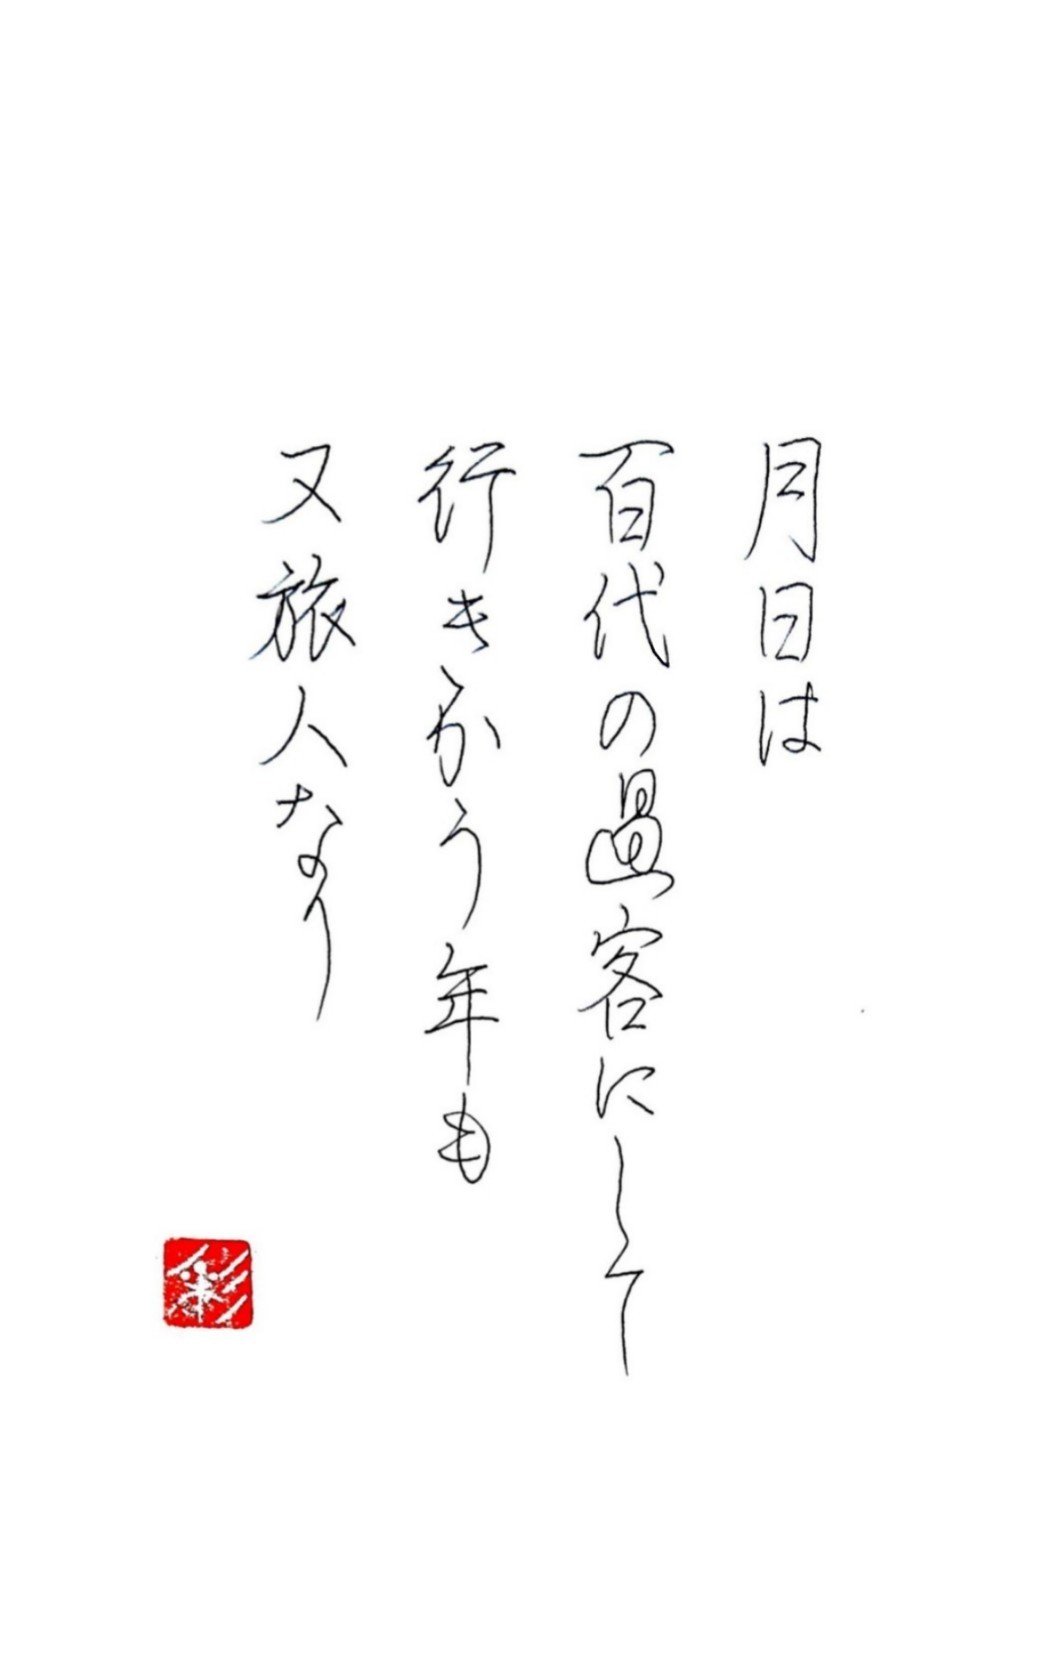 月日は
百代の過客にして
行きかう年も
又旅人なり
彩